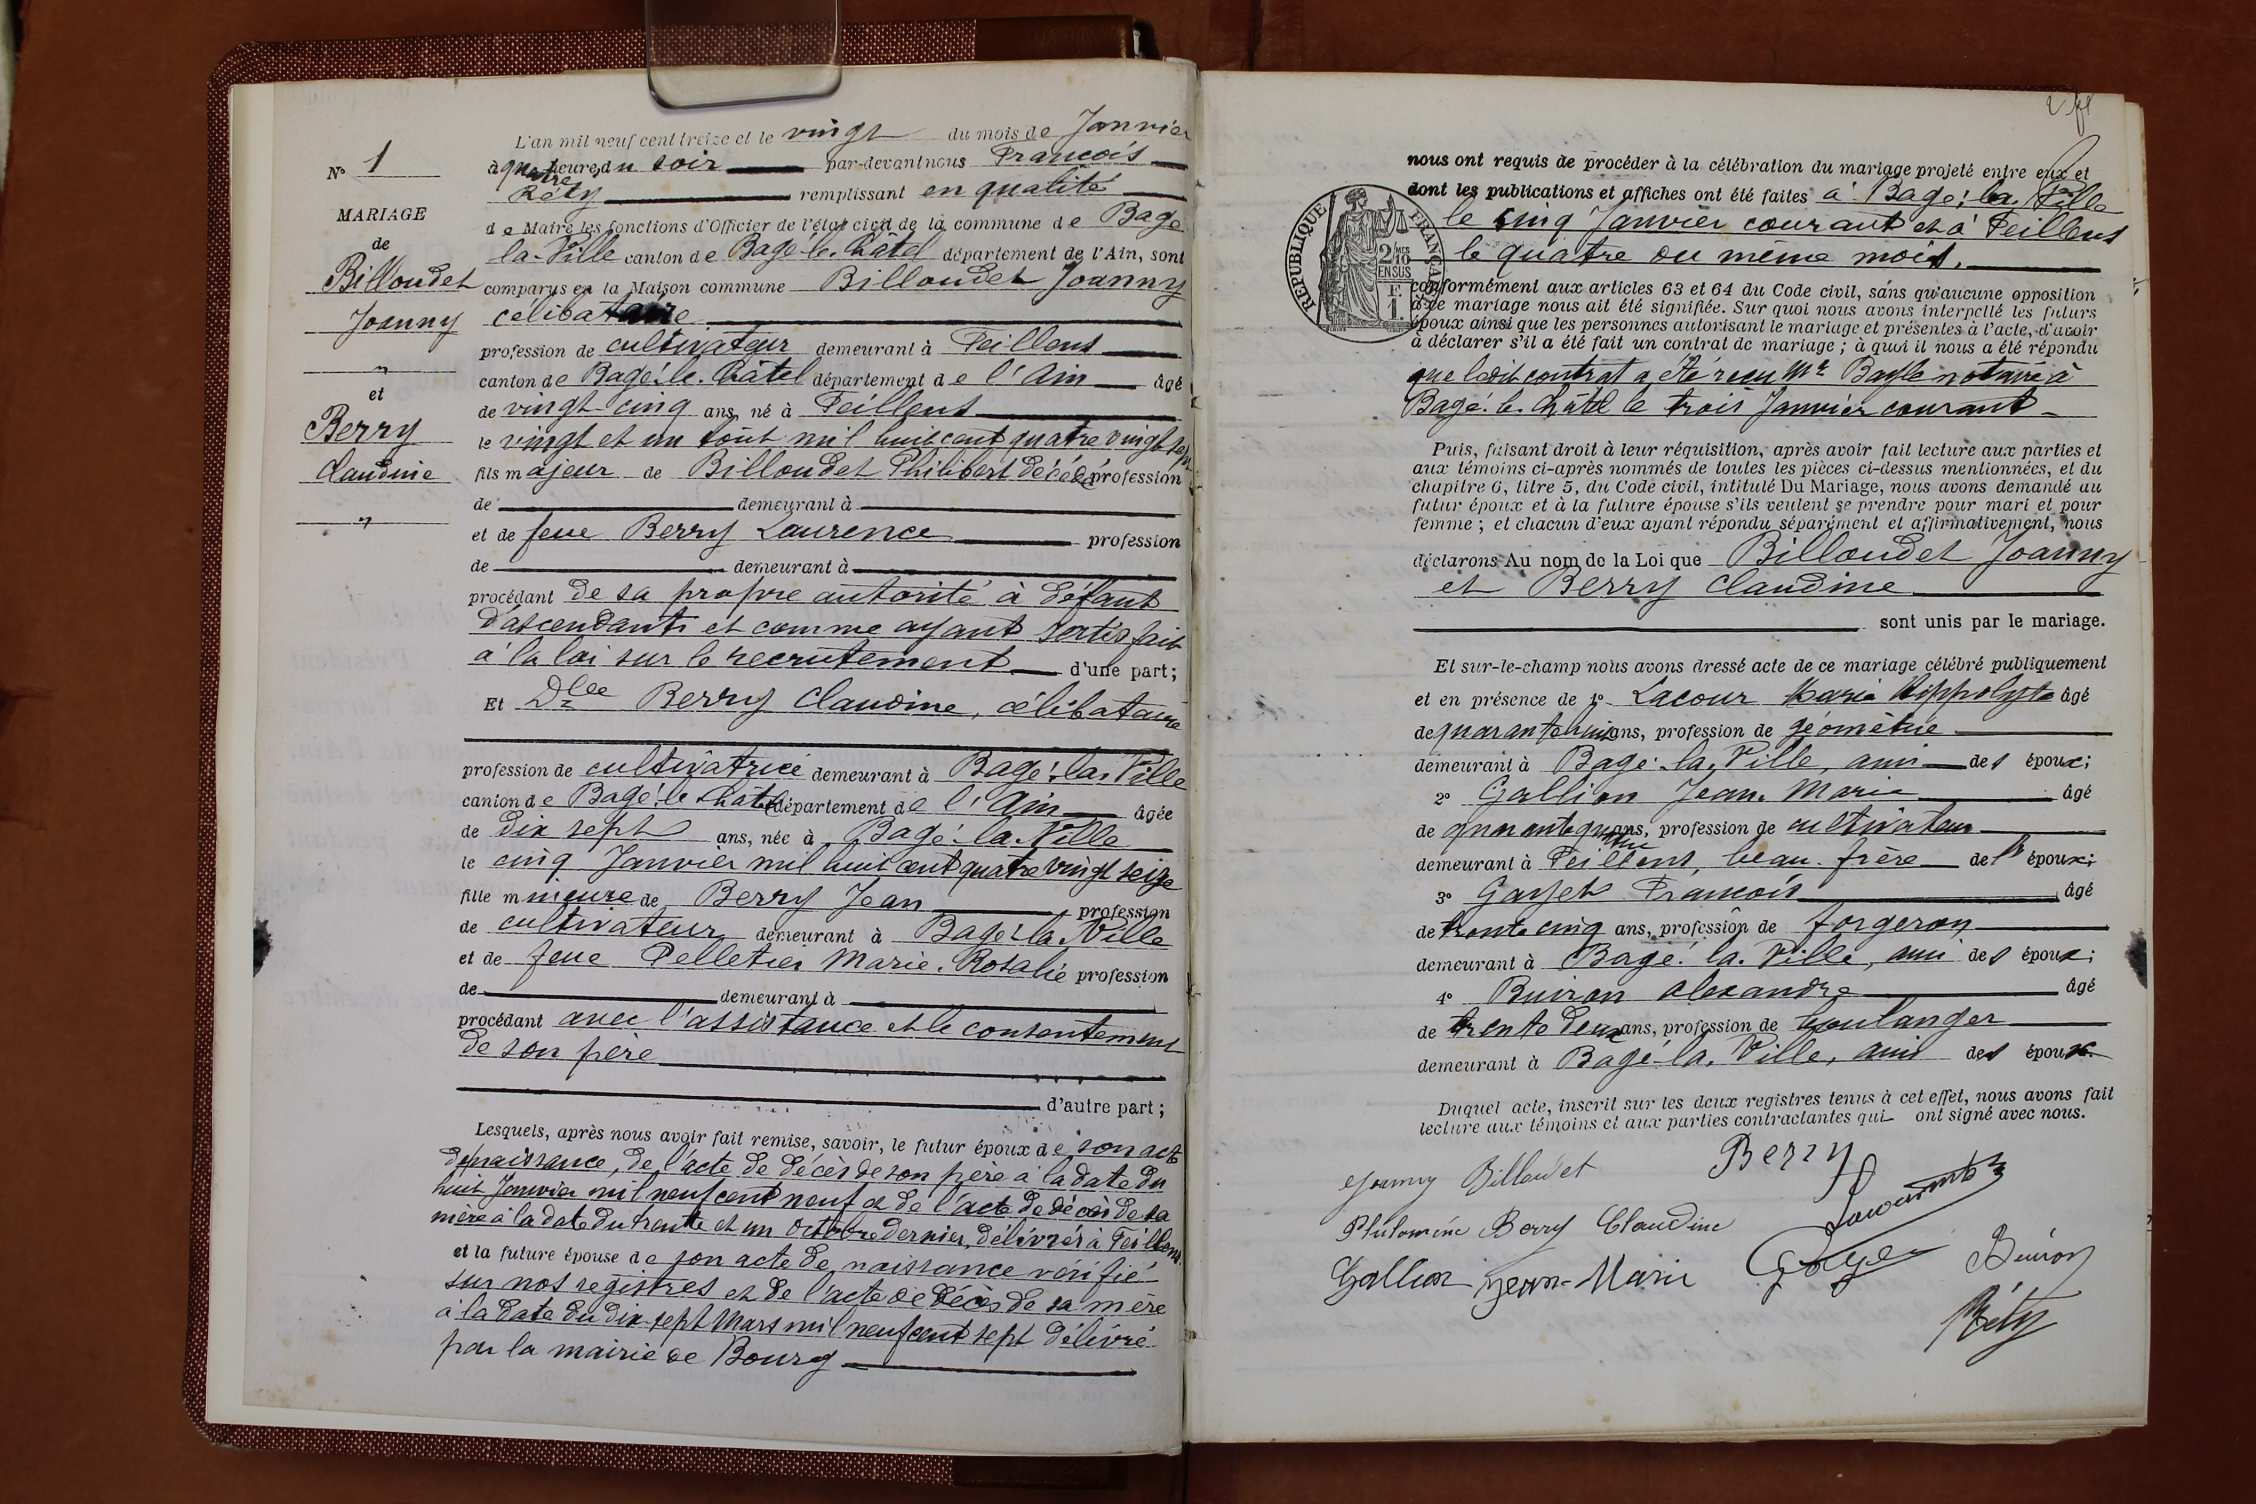 N° 1
MARIAGE
de
Billoudet
Joanny
et
Berry
Claudine
L'an mil neuf cent treize et le vingt du mois de Janvier
à quatre heure, du soir par-devant nous François
Réty remplissant en qualité
de Maire les fonctions d'Officier de l'état civil de la commune de Bagé
la-Ville canton de Bagé-le-Châtel département de l'Ain, sont
comparus en la Maison commune Billoudet Joanny
célibataire
profession de cultivateur demeurant à Feillens
canton de Bagé-le-Châtel département de l'Ain âgé
de vingt-cinq ans, né à Feillens
le vingt et un Août mil huit cent quatre vingt sept
fils majeur de Billoudet Philibert décédé profession
de demeurant à
et de feue Berry Laurence profession
de demeurant à
procédant de sa propre autorité à défaut
d'ascendants et comme ayant satisfait
à la loi sur le recrutement d'une part;
Et Dlle Berry Claudine, célibataire
profession de cultivatrice demeurant à Bagé-la-Ville
canton de Bagé-le-Châtel département de l'Ain âgée
de dix sept ans, née à Bagé-la-Ville
le cinq Janvier mil huit cent quatre vingt seize
fille mineure de Berry Jean profession
de cultivateur demeurant à Bagé-la-Ville
et de feue Pelletier Marie-Rosalie profession
de demeurant à
procédant avec l'assistance et le consentement
de son père
d'autre part;
Lesquels, après nous avoir fait remise, savoir, le futur époux de son acte
de naissance, de l'acte de décès de son père à la date du
huit Janvier mil neuf cent neuf et de l'acte de décès de sa
mère à la date du trente et un Octobre dernier, délivrés à Feillens
et la future épouse de son acte de naissance vérifié
sur nos registres et de l'acte de décès de sa mère
à la date du dix-sept Mars mil neuf cent sept délivré
par la mairie de Bourg
nous ont requis de procéder à la célébration du mariage projeté entre eux et
dont les publications et affiches ont été faites à Bagé-la-Ville
le cinq Janvier courant et à Feillens
le quatre du même mois.
RÉPUBLIQUE FRANÇAISE
2 MES
10
EN SUS
F.
1.
conformément aux articles 63 et 64 du Code civil, sans qu'aucune opposition
à ce mariage nous ait été signifiée. Sur quoi nous avons interpellé les futurs
époux ainsi que les personnes autorisant le mariage et présentes à l'acte, d'avoir
à déclarer s'il a été fait un contrat de mariage; à quoi il nous a été répondu
que ledit contrat a été reçu Mr Bayle notaire à
Bagé-le-Châtel le trois Janvier courant
Puis, faisant droit à leur réquisition, après avoir fait lecture aux parties et
aux témoins ci-après nommés de toutes les pièces ci-dessus mentionnées, et du
chapitre 6, titre 5, du Code civil, intitulé Du Mariage, nous avons demandé au
futur époux et à la future épouse s'ils veulent se prendre pour mari et pour
femme; et chacun d'eux ayant répondu séparément et affirmativement, nous
déclarons Au nom de la Loi que Billoudet Joanny
et Berry Claudine
sont unis par le mariage.
Et sur-le-champ nous avons dressé acte de ce mariage célébré publiquement
et en présence de 1° Lacour Marie Hippolyte âgé
de quarante huit ans, profession de géomètre
demeurant à Bagé-la-Ville, ami des époux;
2° Gallion Jean-Marie âgé
de quarante quatre ans, profession de cultivateur
demeurant à Feillens, beau-frère de l' époux;
3° Gayet François âgé
de trente cinq ans, profession de forgeron
demeurant à Bagé-la-Ville, ami des époux;
4° Buiron Alexandre âgé
de trente deux ans, profession de boulanger
demeurant à Bagé-la-Ville, ami des époux.
Duquel acte, inscrit sur les deux registres tenus à cet effet, nous avons fait
lecture aux témoins et aux parties contractantes qui ont signé avec nous.
Joanny Billoudet Berry
Philomène Berry Claudine
Gallion Jean-Marie Gayet Buiron
Réty